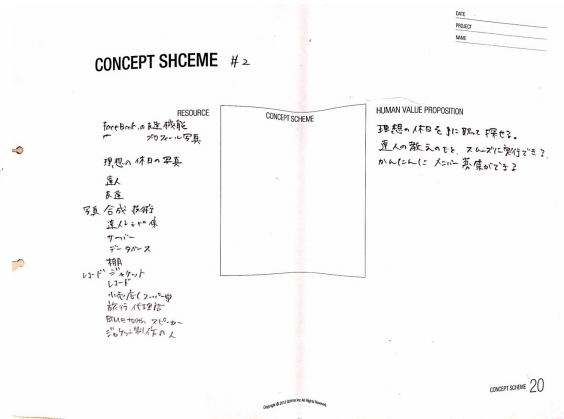 DATE
PROJECT
NAME
CONCEPT SHCEME #2
RESOURCE
facebookの友達機能
プロフィール写真
理想の休日の写真
達人
友達
写真合成技術
達人レシピ
サーバー
データベース
棚
レコードジャケット
レコード
小売店(スーパー
旅行代理店
Bluetooth スピーカー
ジャケット制作の人
CONCEPT SCHEME
HUMAN VALUE PROPOSITION
理想の休日を 探せる。
達人の教えのもと、スムーズに実行できる。
かんたんに メンバー募集ができる
CONCEPT SCHEME 20